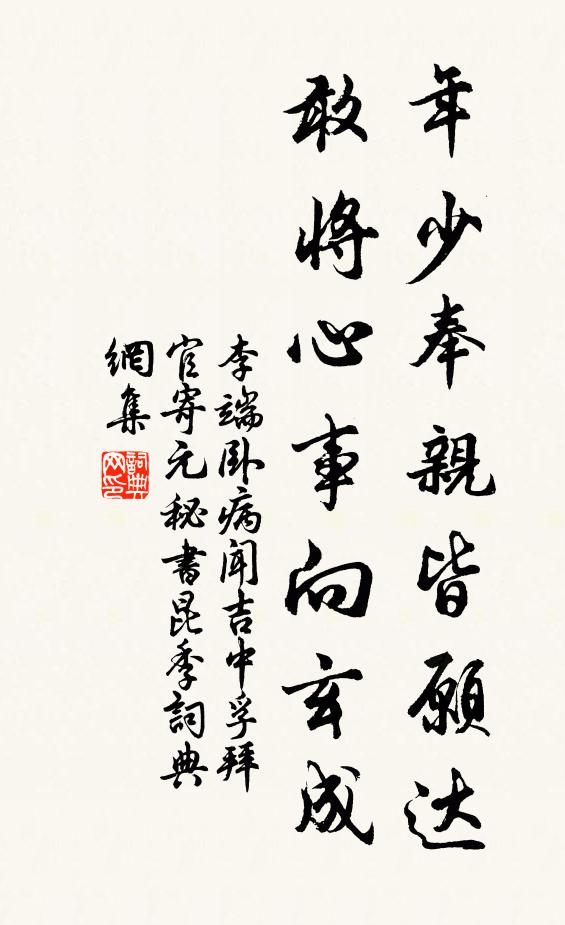 年少奉親皆願达
敢將心事向玄成
李端卧病聞吉中孚拜
官寄元秘書昆季詞典
網集
詞典
网印